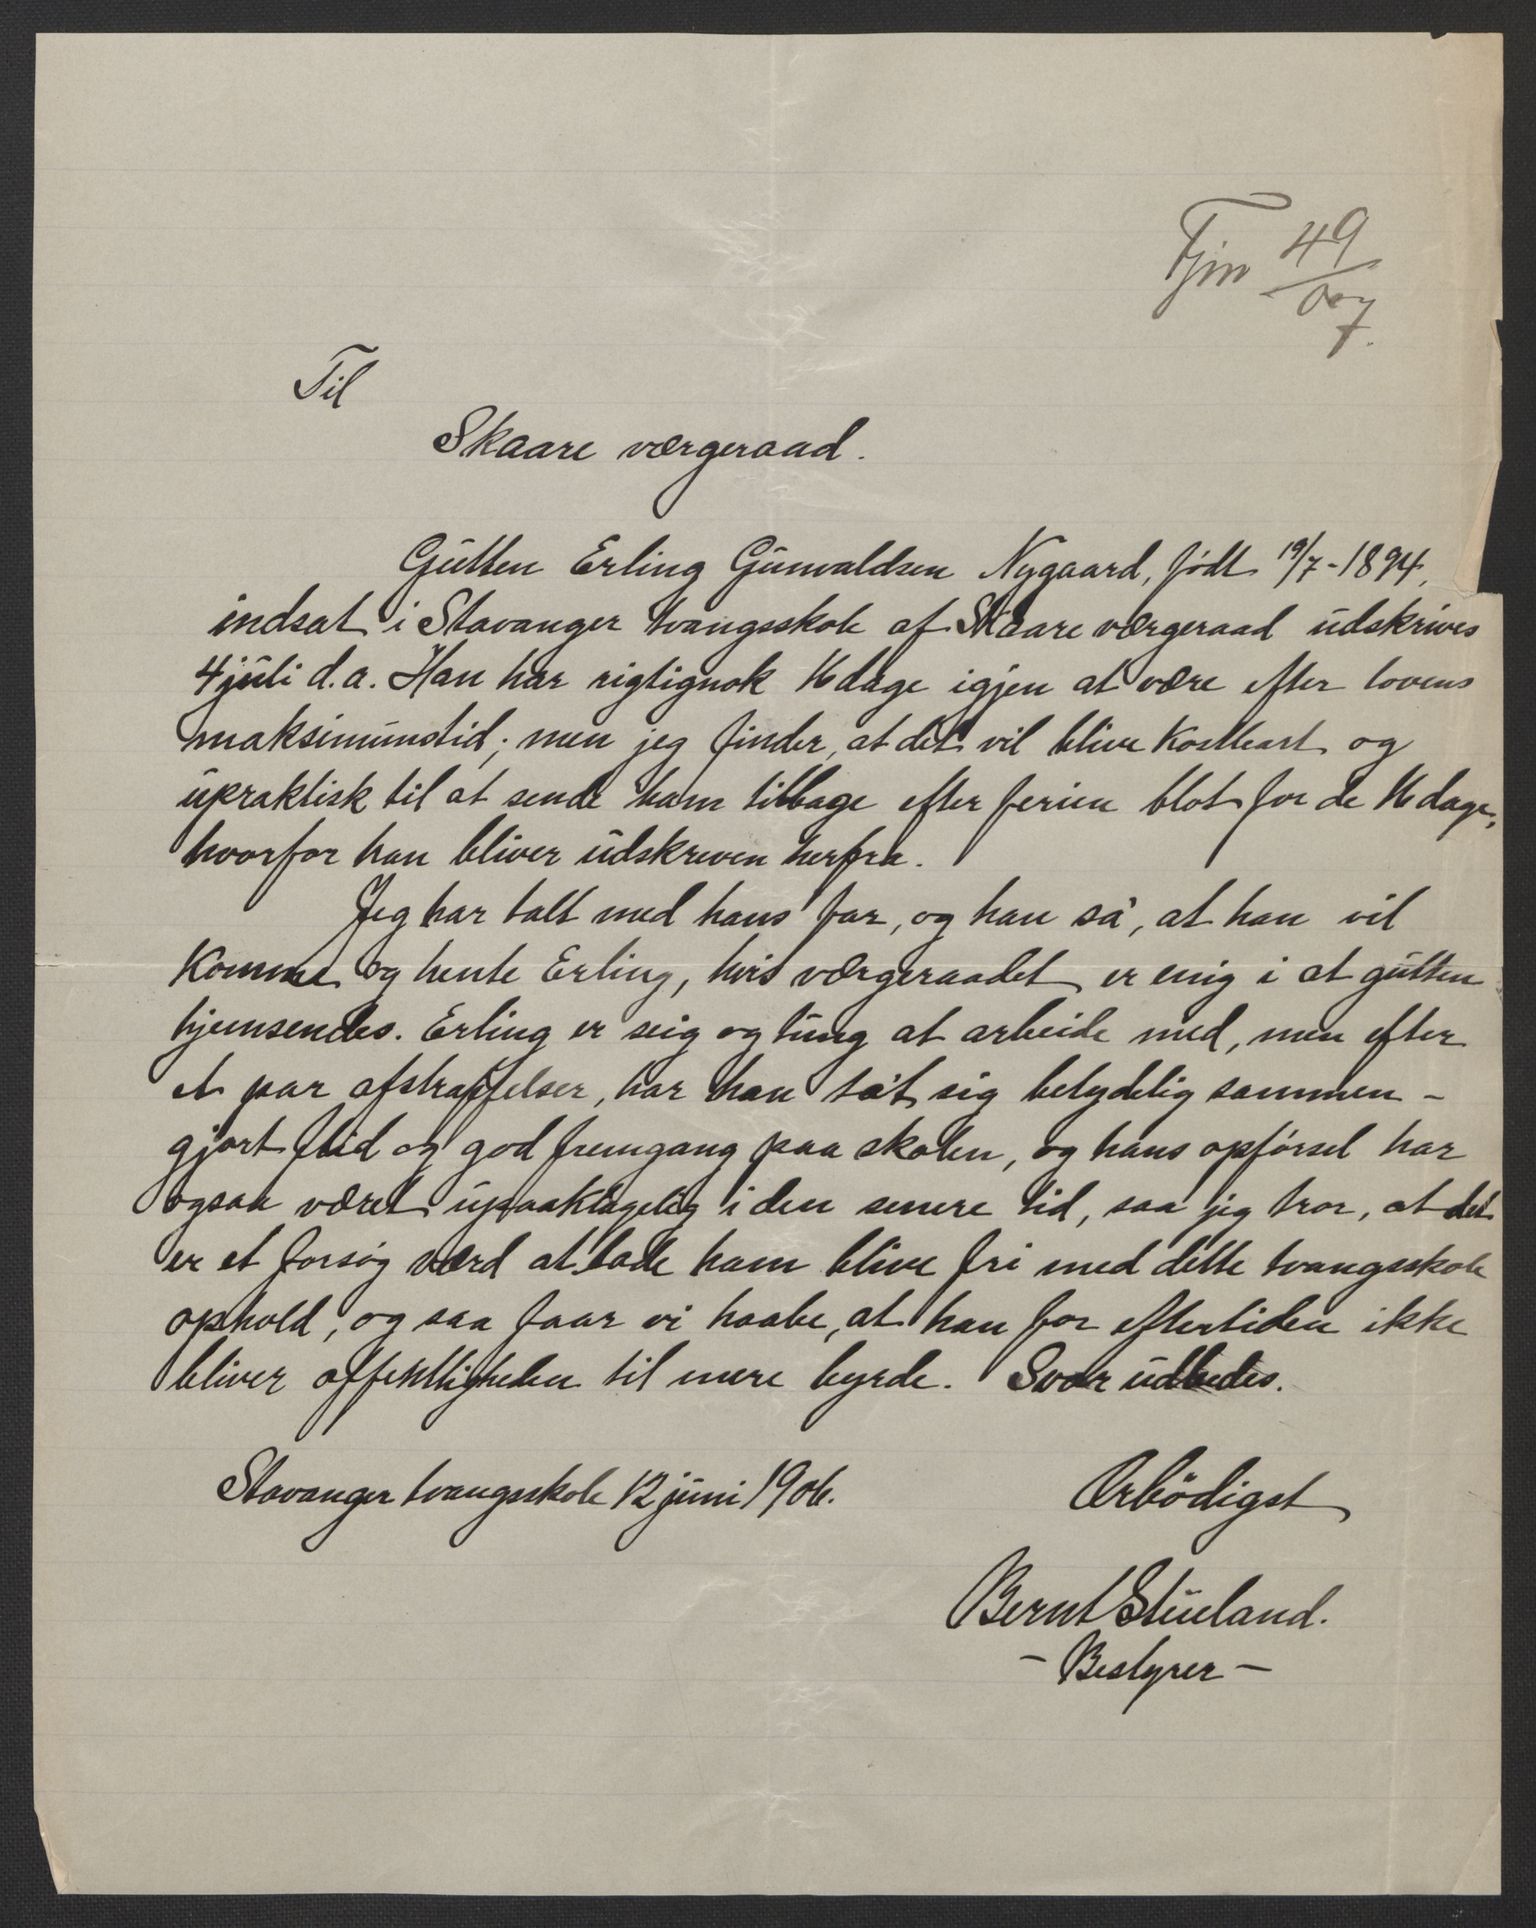 Fjm 49/007.
Til
Skaare værgeraad.
Gutten Erling Gunvaldsen Nygaard, født 19/7-1894,
indsat i Stavanger tvangsskole af Skaare værgeraad udskrives
4 juli d.a. Han har rigtignok 16 dage igjen at være efter lovens
maksimumstid; men jeg finder, at det vil blive kostbart og
upraktisk til at sende ham tilbage efter ferien blot for de 16 dage,
hvorfor han bliver udskreven herfra.
Jeg har talt med hans far, og han sa', at han vil
komme og hente Erling, hvis værgeraadet er enig i at gutten
hjemsendes. Erling er seig og tung at arbeide med, men efter
et par afstraffelser, har han ta't sig betydelig sammen -
gjort flid og god fremgang paa skolen, og hans opførsel har
ogsaa været upaaklagelig i den senere tid, saa jeg tror, at det
er et forsøg værd at lade ham blive fri med dette tvangsskole
ophold, og saa faar vi haabe, at han for eftertiden ikke
bliver offentligheden til mere byrde. Svar udbedes.
Stavanger tvangsskole 12 juni 1906.
Ærbödigst
Bernt Stueland.
- Bestyrer -